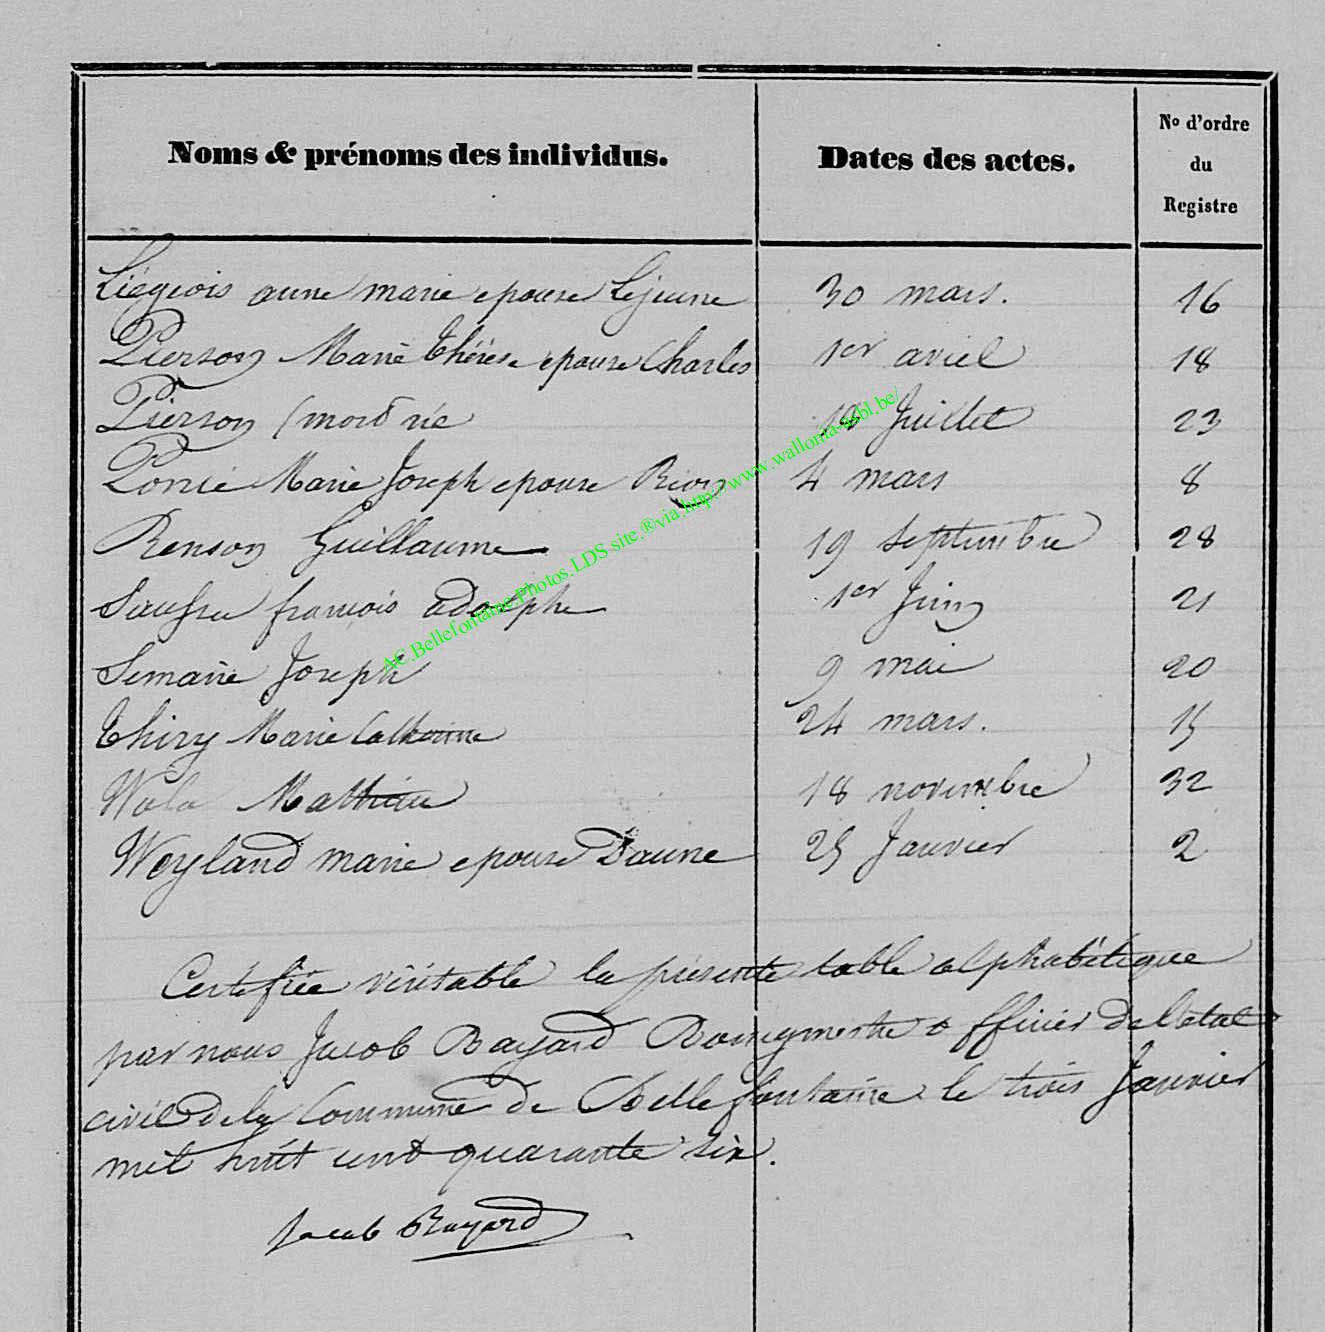 Noms & prénoms des individus. Dates des actes. No d'ordre du Registre
Liégeois anne marie epouse Lejeune 30 mars. 16
Pierson Marie Thérèse epouse Charles 1er avril 18
Pierson (mort né Juillet 23
Poncé Marie Joseph epouse 4 mars 8
Renson Guillaume 19 septembre 28
françois adolphe 1er Juin 21
Semaire Joseph 9 mai 20
Thiry Marie Catherine 24 mars. 15
Wala Mathieu 18 novembre 32
Weyland marie epouse Daune 25 Janvier 2
Certifiée véritable la présente table alphabétique
par nous Jacob Bayard Bourgmestre officier de l'etat
civil de la Commune de Bellefontaine le trois Janvier
mil huit cent quarante six.
Jacob Bayard
AC.Bellefontaine.Photos.LDS.site.®via.http://www.wallonia-asbl.be/